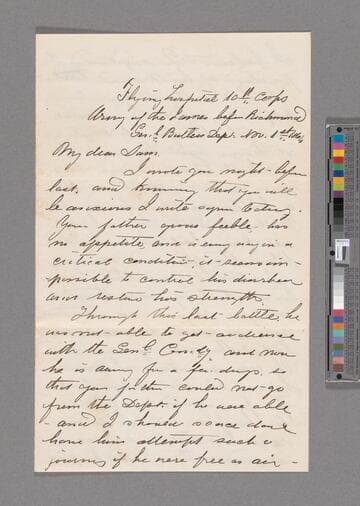 Flying hospital 10th Corps
Army of the James before Richmond
Genl. Butlers Dept. Nov. 1st
My dear Sam.
I wrote you night before
last, and knowing that you will
be anxious I write again today.
Your father grows feeble - has
no appetite, and is every way in a
critical condition, it seems im-
possible to control his diarrhea
or restore his strength.
Through this last battle, he
was not able to get audience
with the Genl. Com'dg and now
he is away for a few days, so
that your father could not go
from the Dept. if he were able
- and I should scarce dare
have him attempt such a
journey if he were free as air -